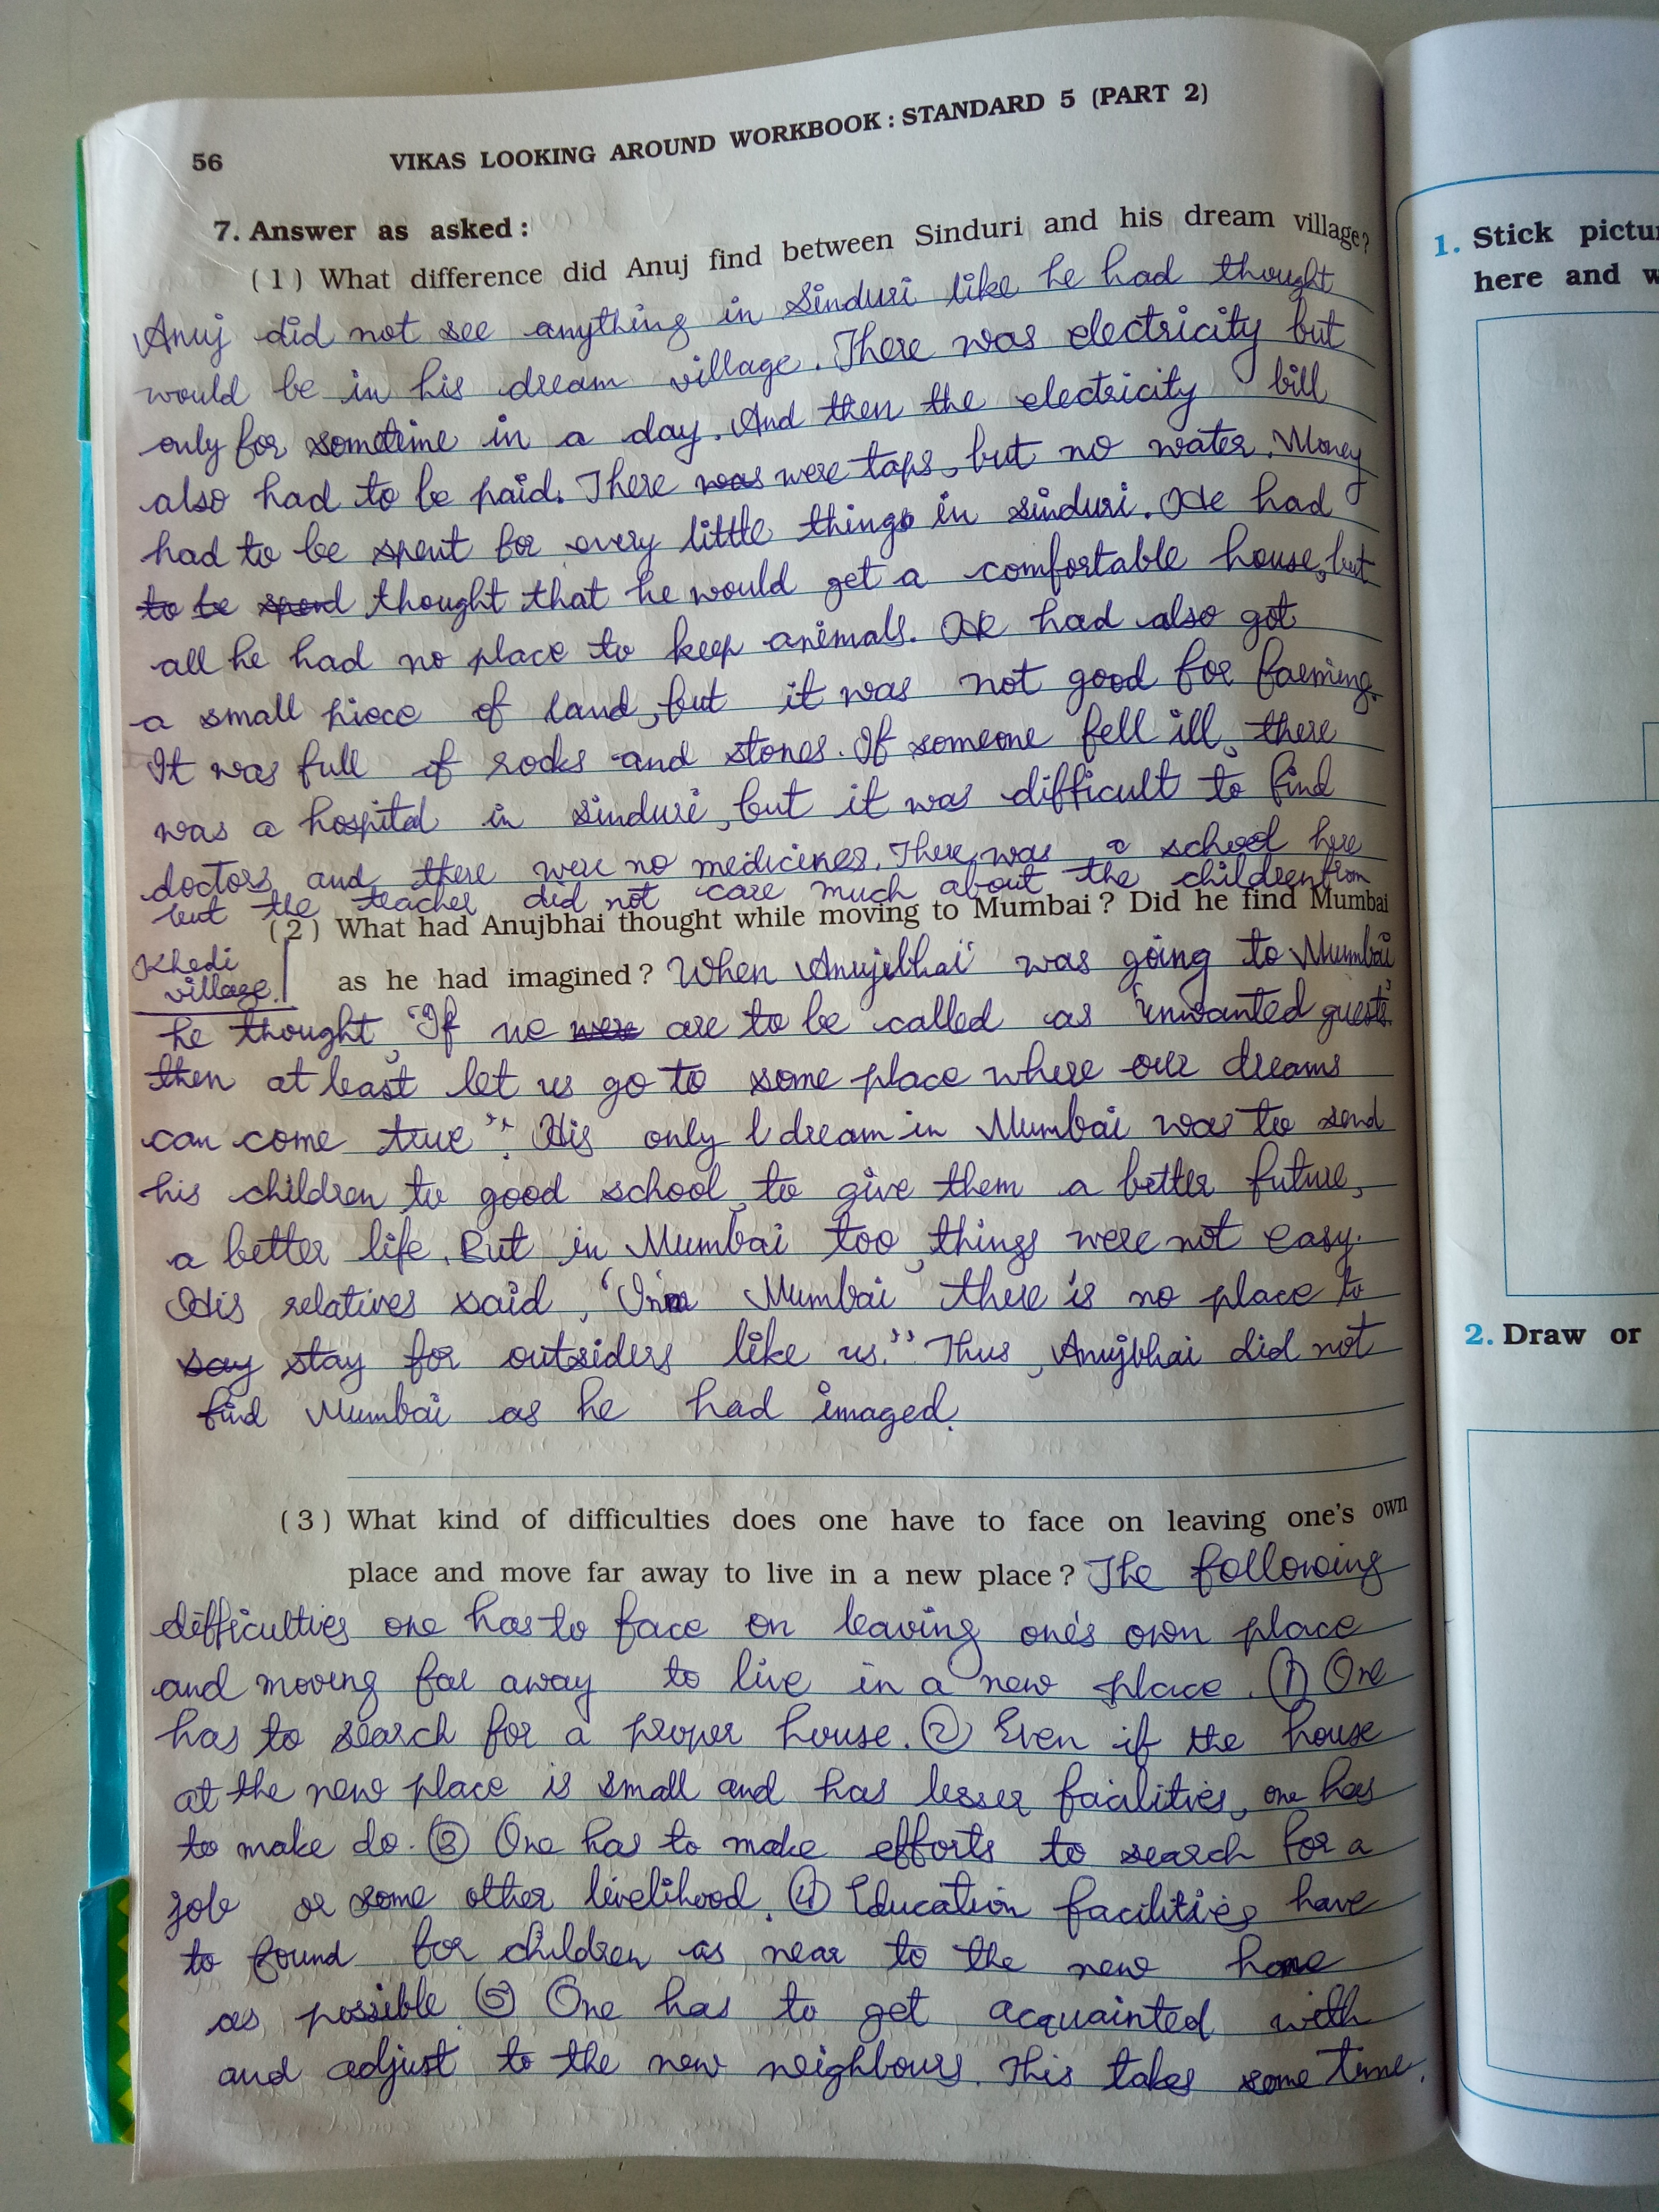 56 VIKAS LOOKING AROUND WORKBOOK : STANDARD 5 (PART 2)
7. Answer as asked :
(1) What difference did Anuj find between Sinduri and his dream village?
Anuj did not see anything in Sinduri like he had thought
would be in his dream village. There was electricity but
only for sometime in a day. And then the electricity bill
also had to be paid. There was were taps, but no water. Money
had to be spent for every little things in sinduri. He had
to be spend thought that he would get a comfortable house, but
all he had no place to keep animals. He had also got
a small piece of land, but it was not good for farming.
It was full of rocks and stones. If someone fell ill, there
was a hospital in sinduri, but it was difficult to find
doctors and there were no medicines. There was a school here
but the teacher did not care much about the children from
(2) What had Anujbhai thought while moving to Mumbai? Did he find Mumbai
Khedi
village.
as he had imagined? When Anujbhai was going to Mumbai
he thought, "If we were are to be called as 'unwanted guests'
then at least let us go to some place where our dreams
can come true". His only dream in Mumbai was to send
his children to good school, to give them a better future,
a better life. But in Mumbai too, things were not easy.
His relatives said, "In Mumbai there is no place to
say stay for outsiders like us." Thus, Anujbhai did not
find Mumbai as he had imaged.
(3) What kind of difficulties does one have to face on leaving one's own
place and move far away to live in a new place? The following
difficulties one has to face on leaving one's own place
and moving far away to live in a new place. (1) One
has to search for a proper house. (2) Even if the house
at the new place is small and has lesser facilities, one has
to make do. (3) One has to make efforts to search for a
job or some other livelihood. (4) Education facilities have
to found for children as near to the new home
as possible. (5) One has to get acquainted with
and adjust to the new neighbours. This takes some time.
1. Stick
here and
2. Draw or